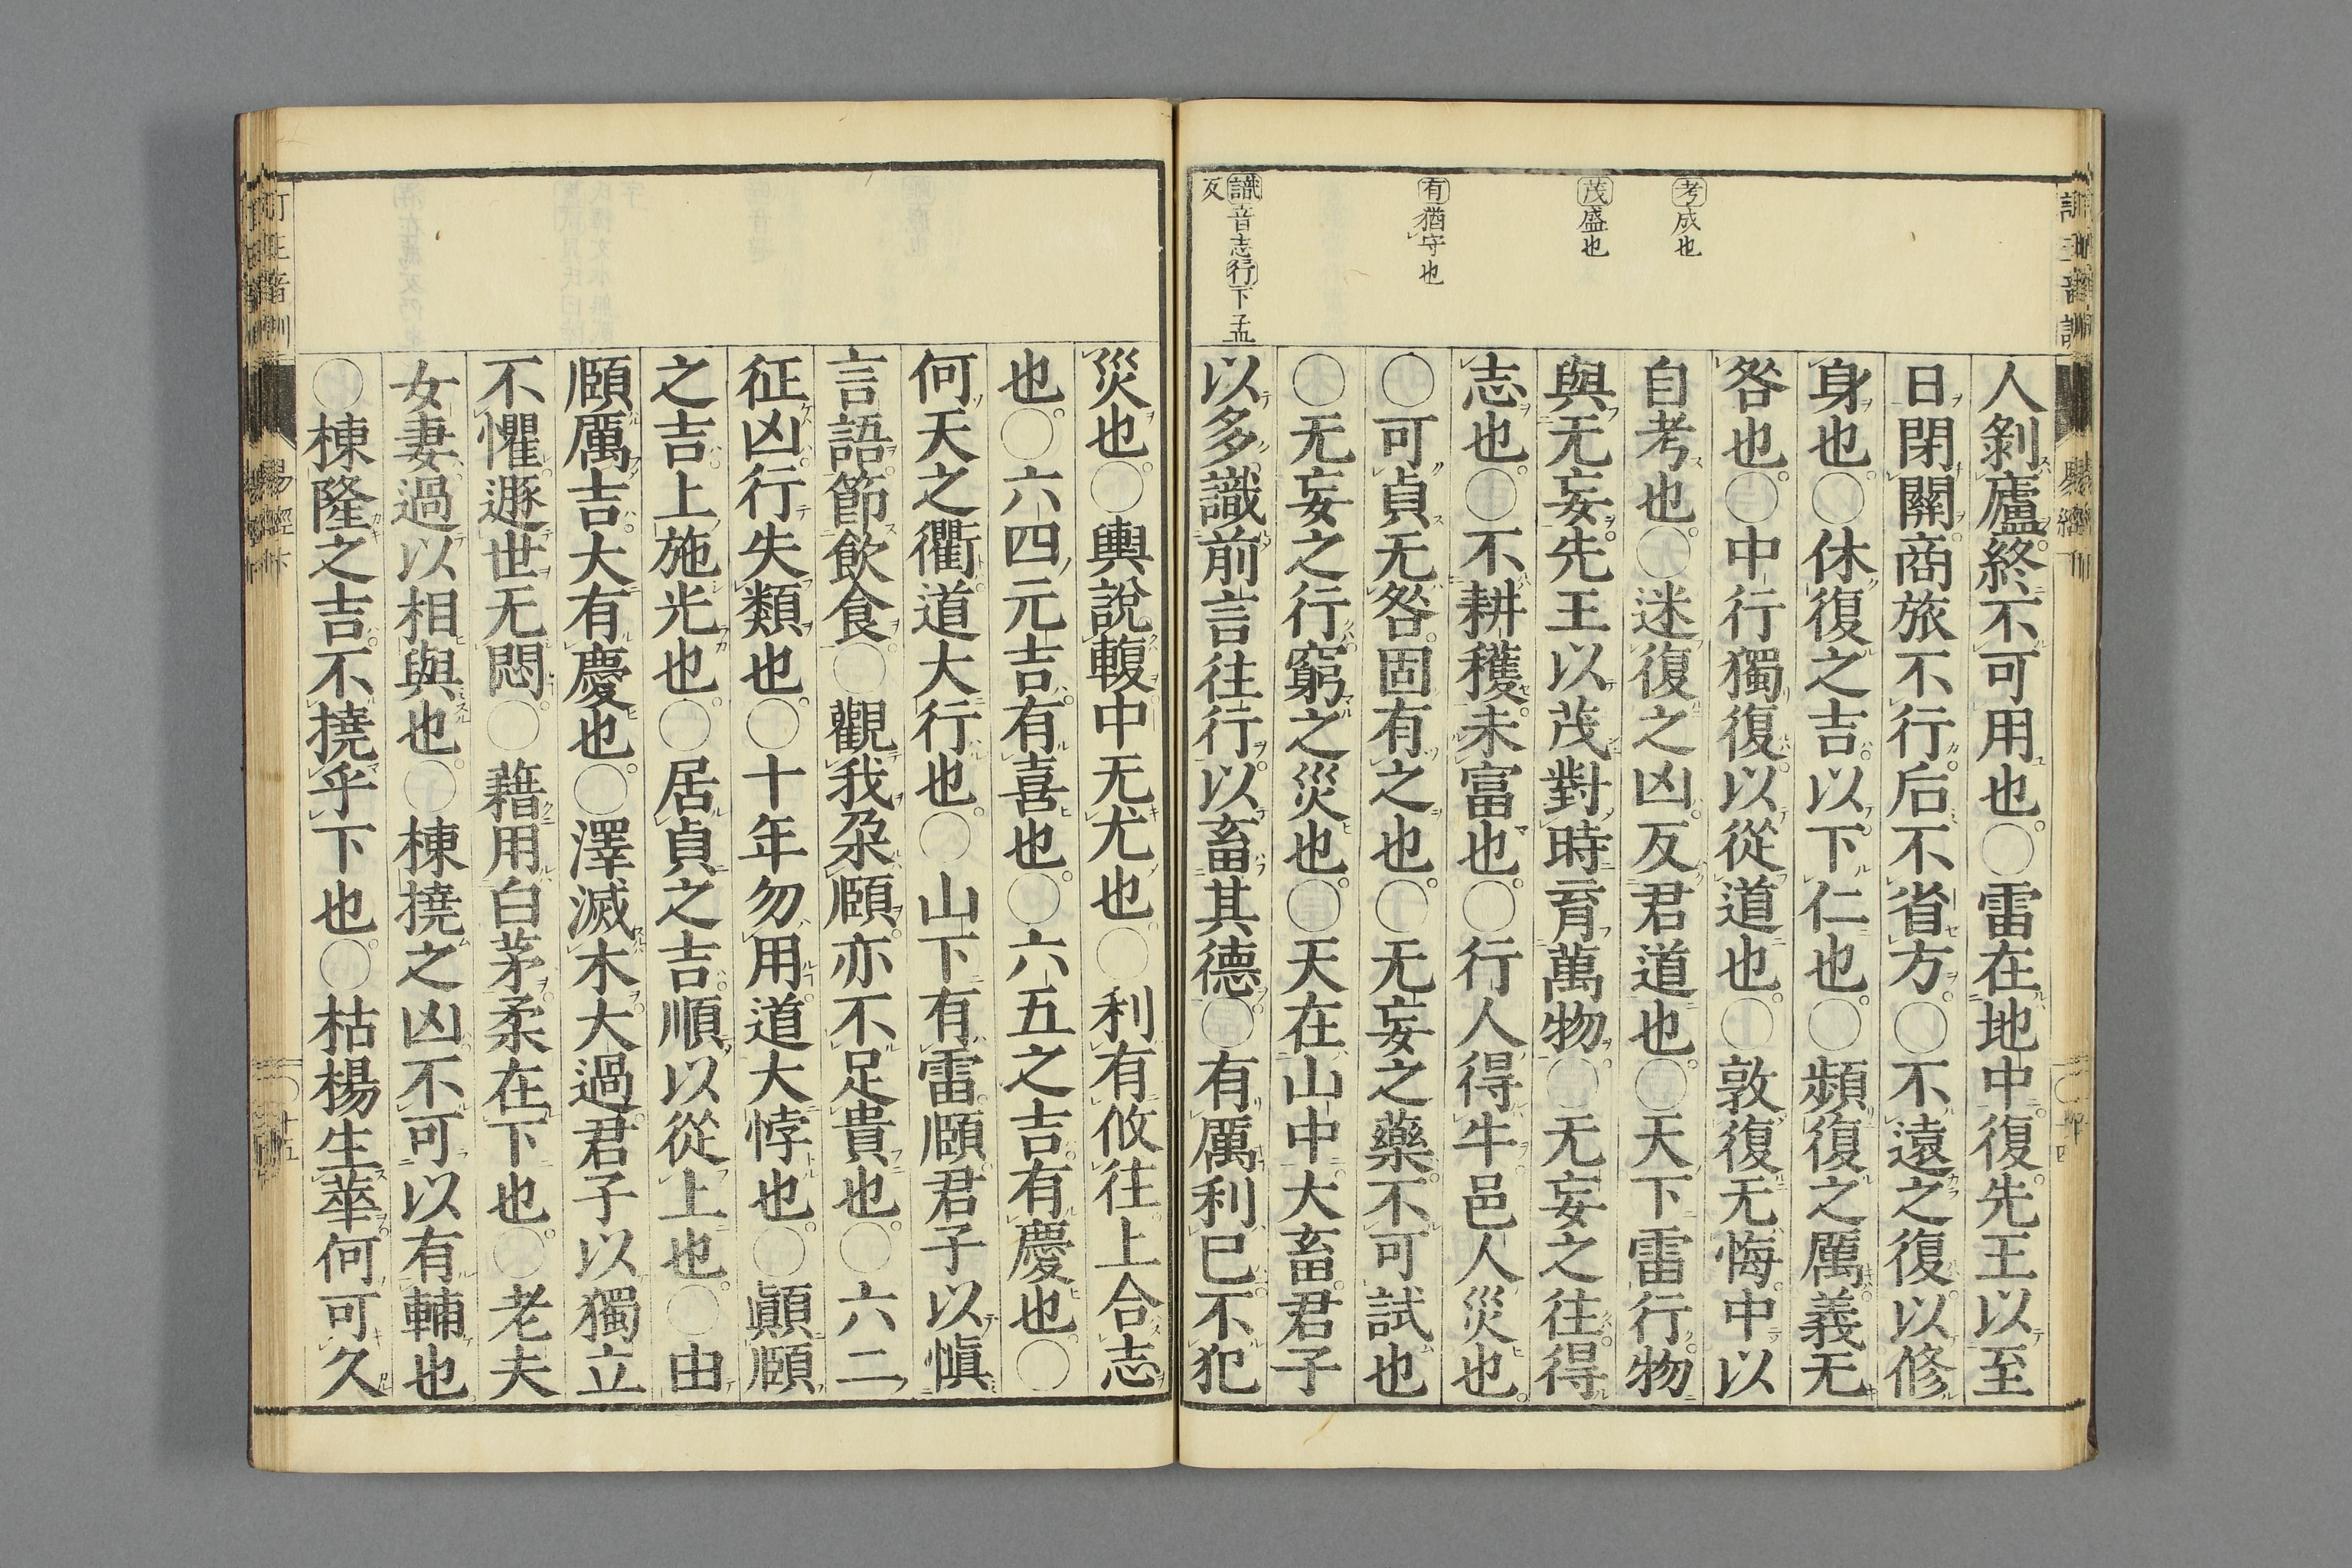 考成也
茂盛也
有猶守也
識音志行下孟
反
人剝廬終不可用也○雷在地中復先王以至
日閉關商旅不行后不省方○不遠之復以修
身也○休復之吉以下仁也○頻復之厲義无
咎也○中行獨復以從道也○敦復无悔中以
自考也○迷復之凶反君道也○天下雷行物
與无妄先王以茂對時育萬物○无妄之往得
志也○不耕穫未富也○行人得牛邑人災也
○可貞无咎固有之也○无妄之藥不可試也
○无妄之行窮之災也○天在山中大畜君子
以多識前言往行以畜其德○有厲利已不犯
災也○輿說輹中无尤也○利有攸往上合志
也○六四元吉有喜也○六五之吉有慶也○
何天之衢道大行也○山下有雷頤君子以慎
言語節飲食○觀我朶頤亦不足貴也○六二
征凶行失類也○十年勿用道大悖也○顚頤
之吉上施光也○居貞之吉順以從上也○由
頤厲吉大有慶也○澤滅木大過君子以獨立
不懼遯世无悶○藉用白茅柔在下也○老夫
女妻過以相與也○棟撓之凶不可以有輔也
○棟隆之吉不撓乎下也○枯楊生華何可久